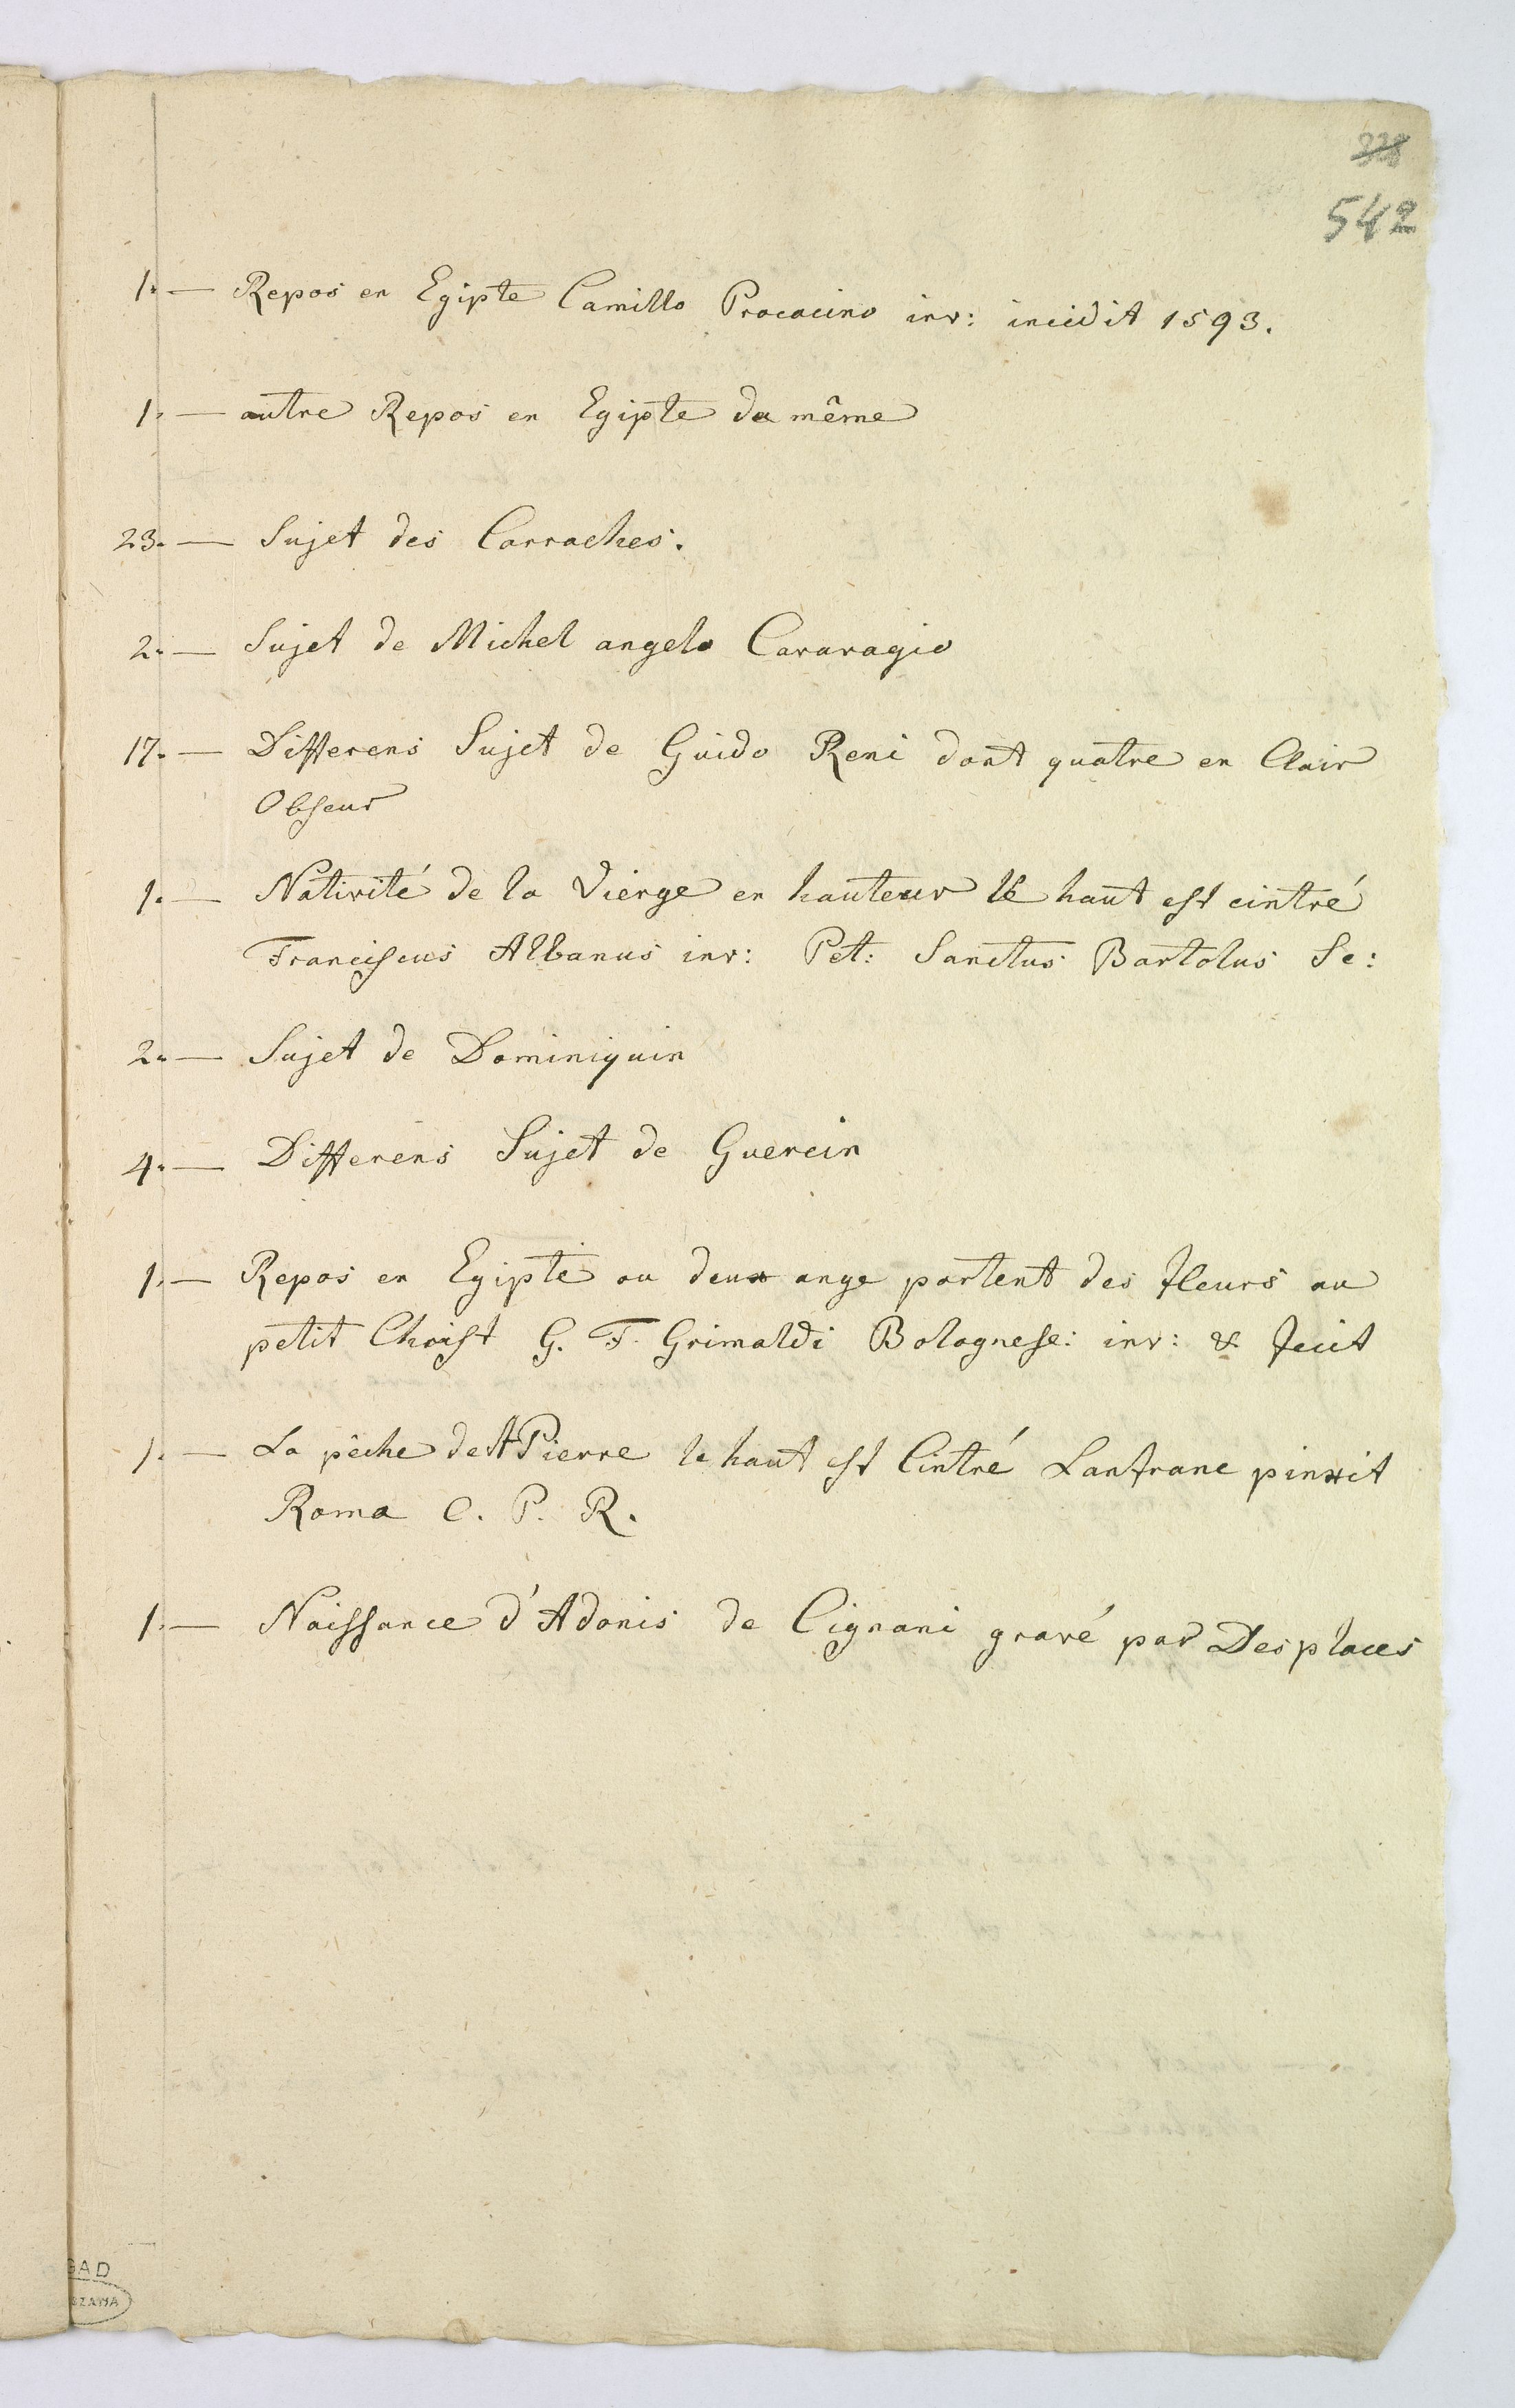 338
542
1. — Repos en Egipte Camillo Procacino inv: incidit 1593.
1. — autre Repos en Egipte du même
23. — Sujet des Carraches.
2. — Sujet de Michel angelo Cararagio
17. — Differens Sujet de Guido Reni dont quatre en Clair
Obscur
1. — Nativité de la Vierge en hauteur le haut est cintré
Franciscus Albanus inv: Pet: Sanctus Bartolus Sc:
2. — Sujet de Dominiquin
4. — Differens Sujet de Guercin
1. — Repos en Egipte ou deux ange portent des fleurs au
petit Christ G. F. Grimaldi Bolognese: inv: & fecit
1. — La pêche de St Pierre le haut est Cintré Lanfranc pinxit
Roma C. P. R.
1. — Naissance d'Adonis de Cignani gravé par Desplaces
GAD
SZAWA